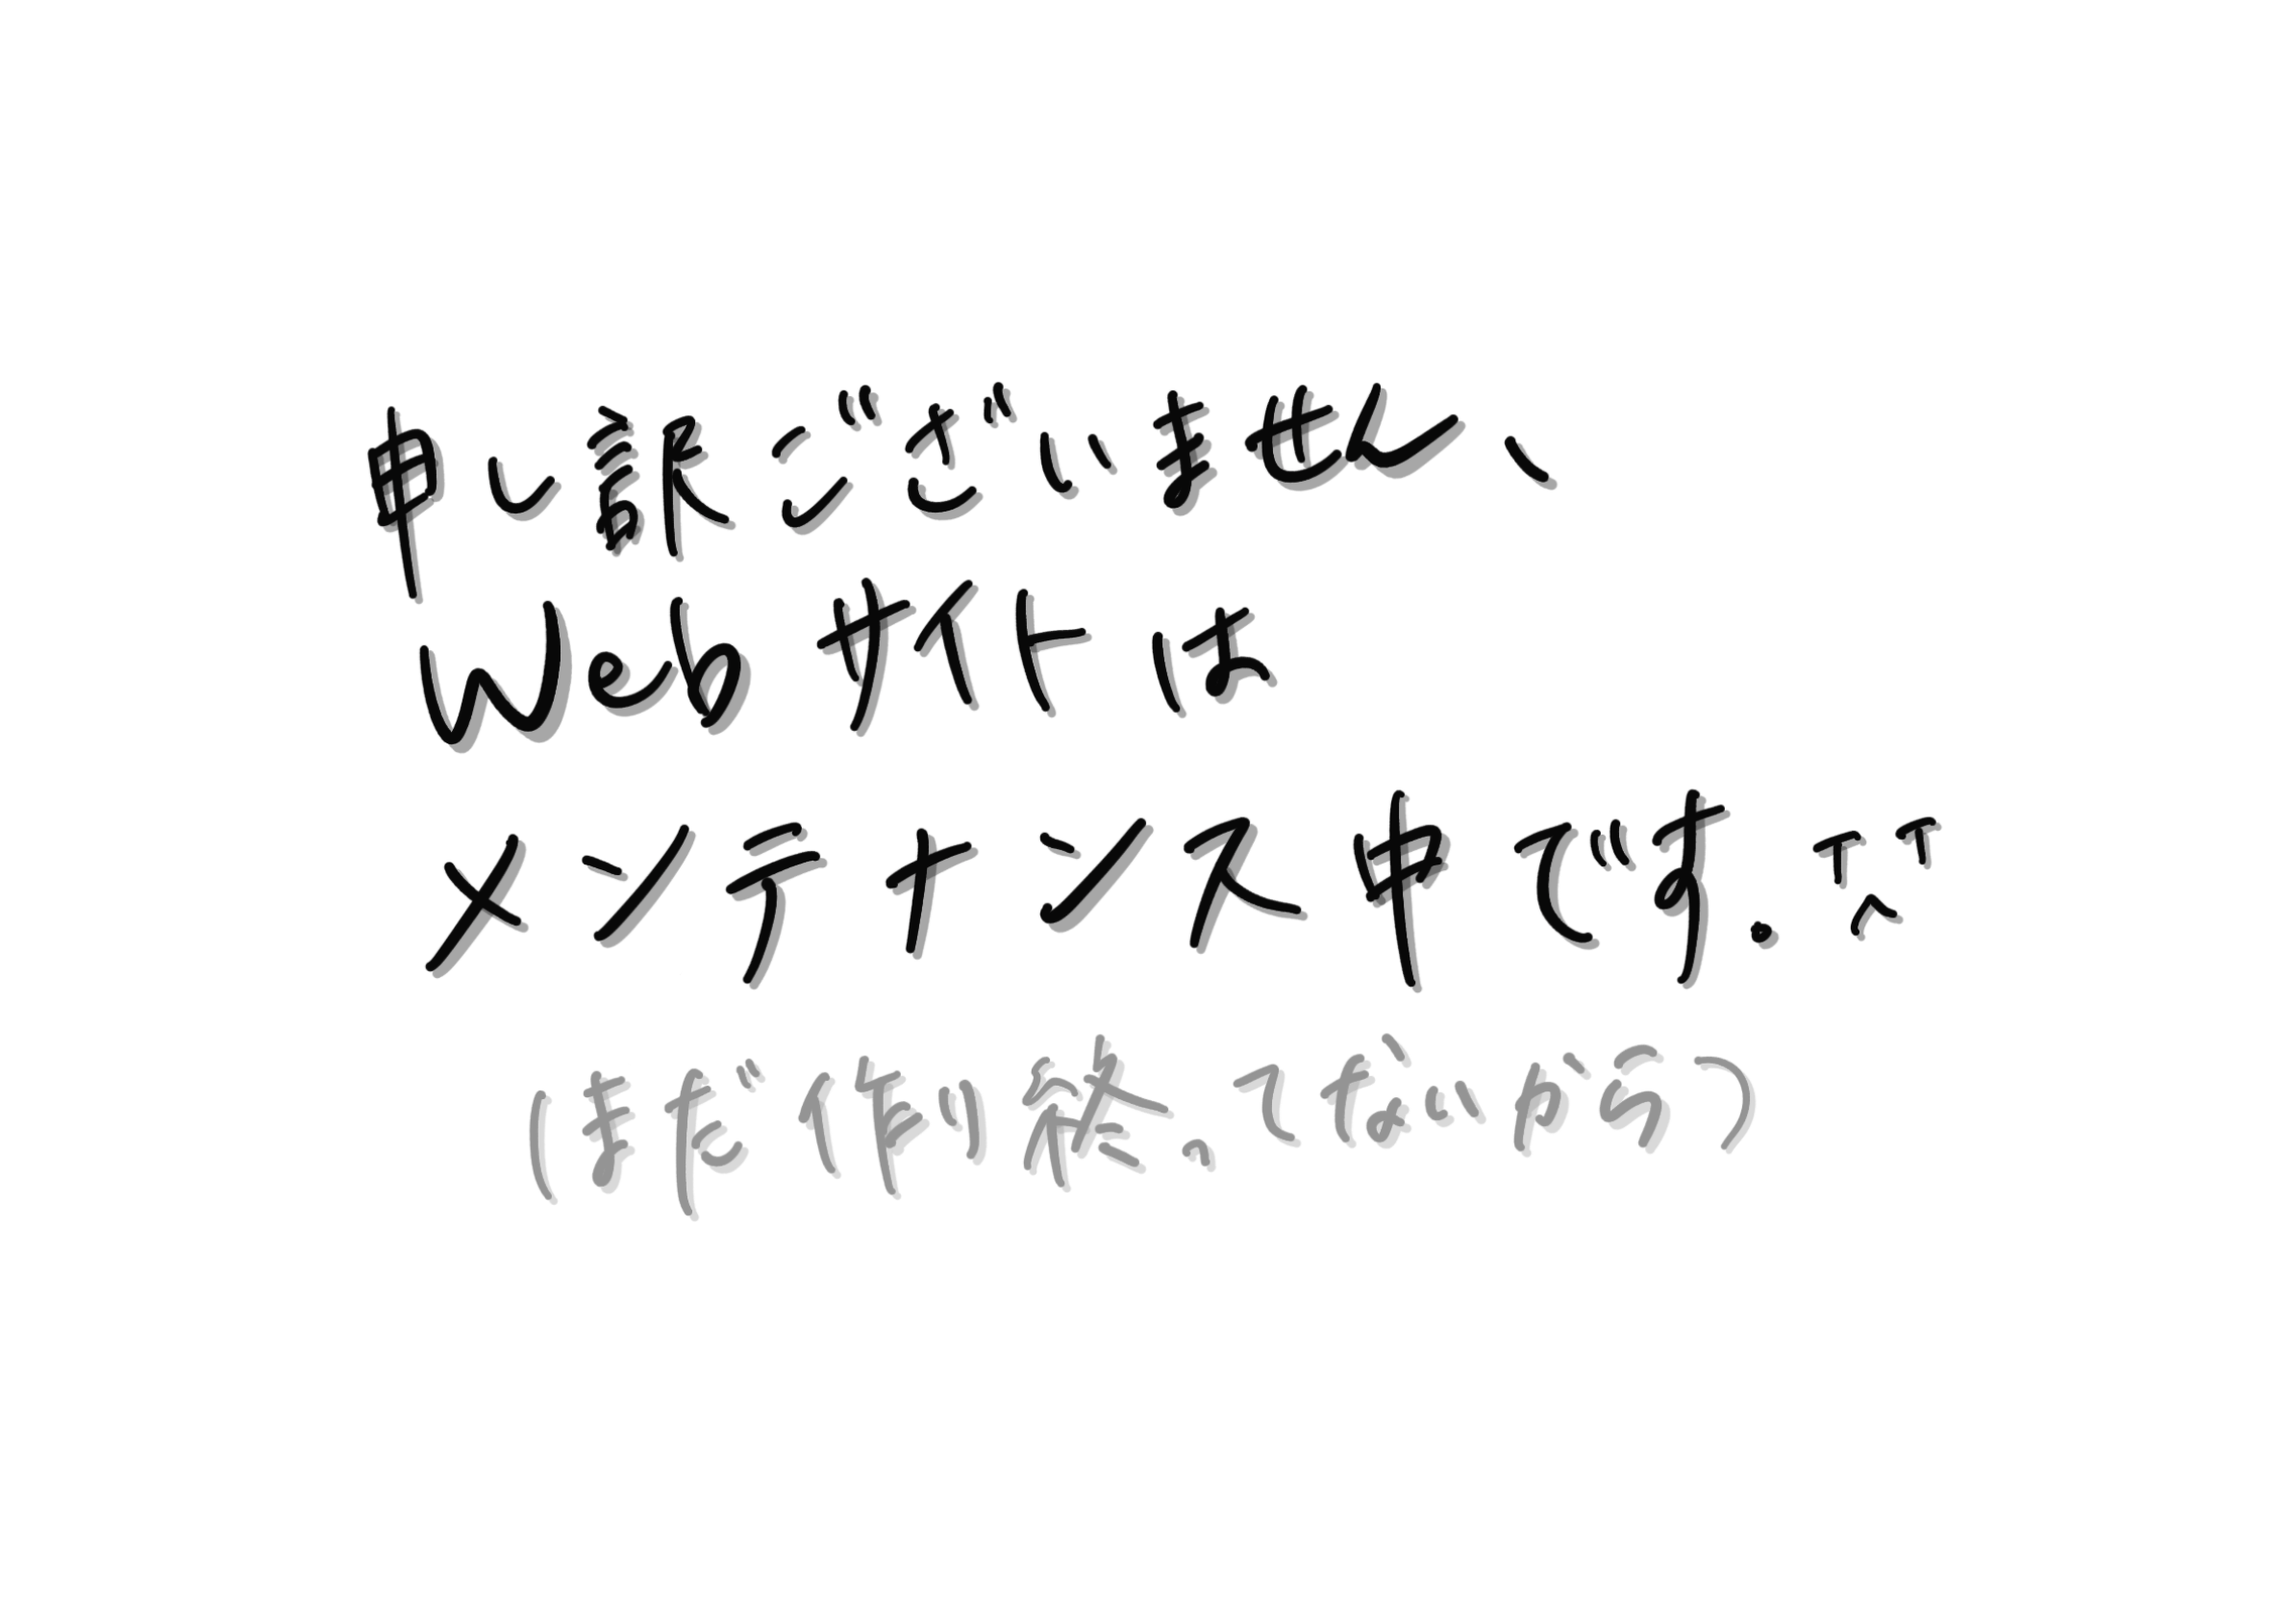 申し訳ございません、
Webサイトは
メンテナンス中です。
(まだ作り終ってないから)